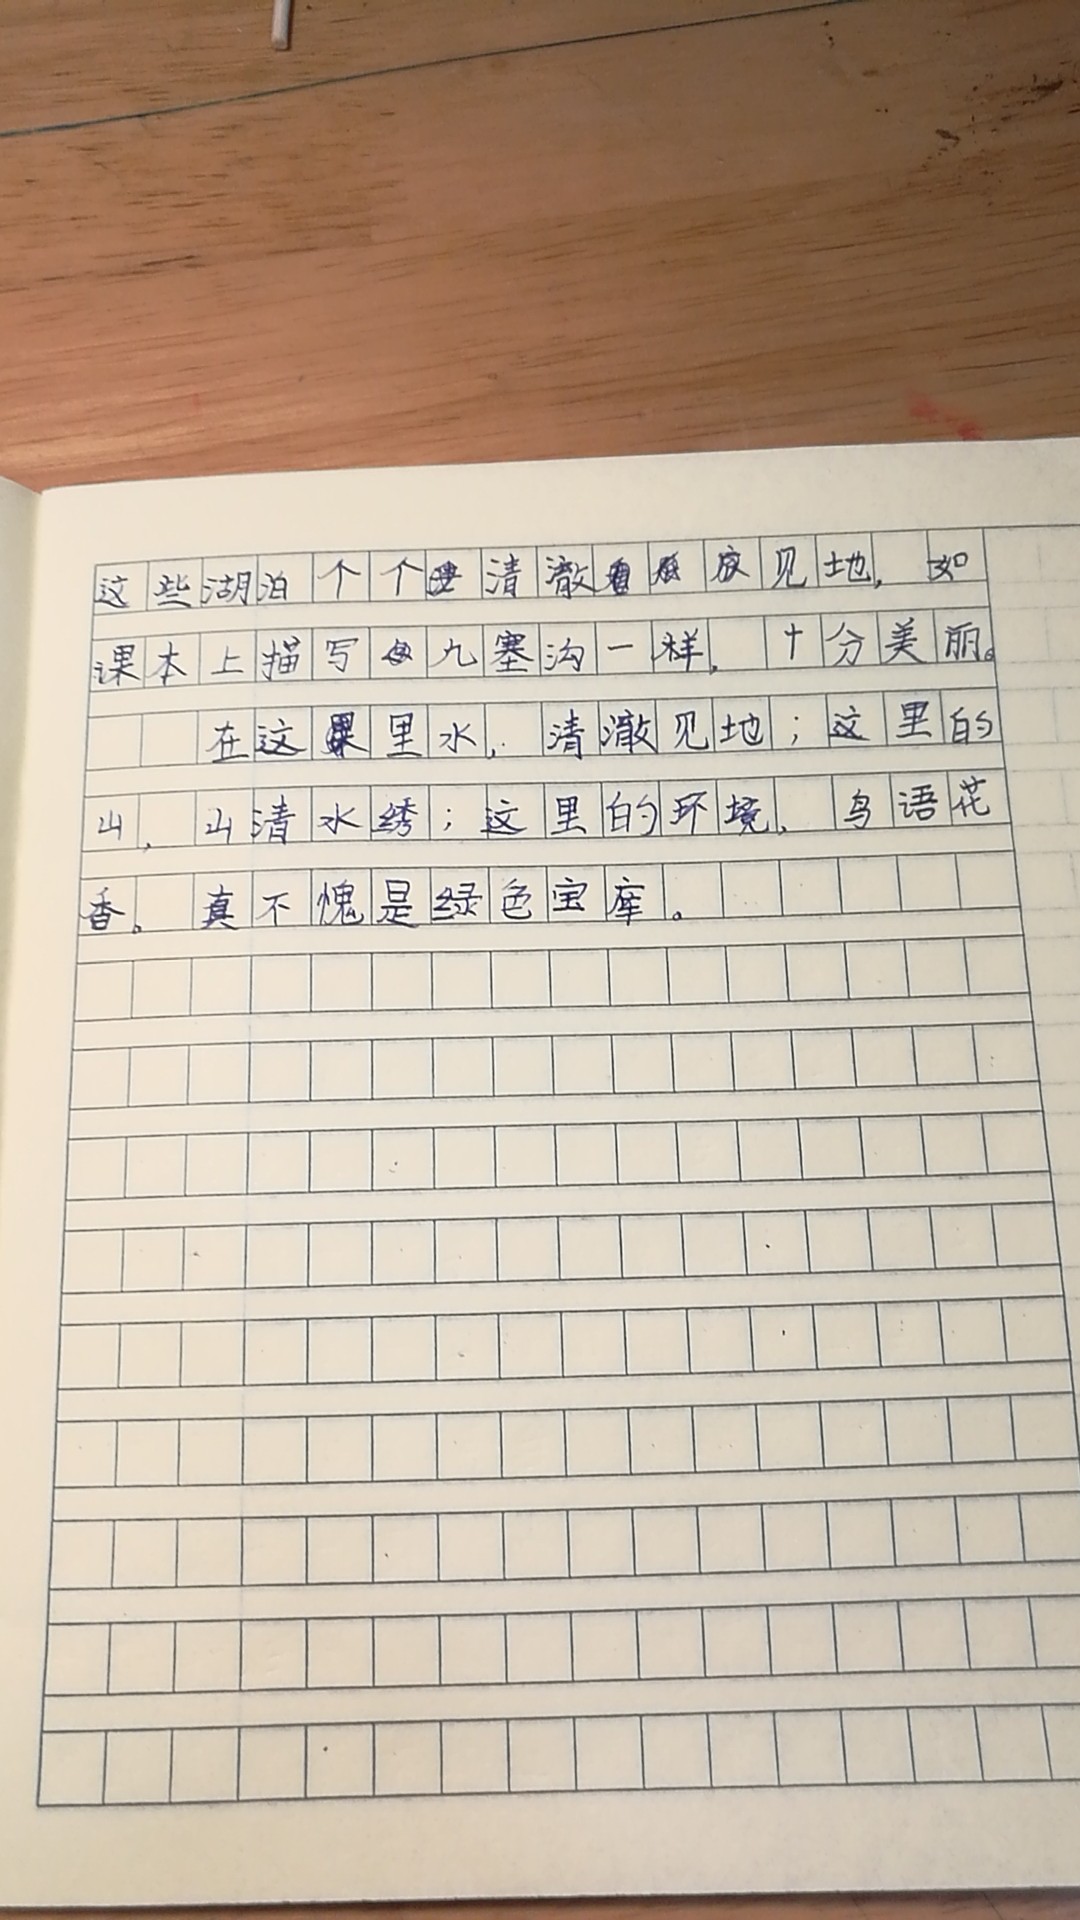 这些湖泊个个清澈底见地，如
课本上描写九塞沟一样，十分美丽。
在这里水，清澈见地；这里的
山，山清水绣；这里的环境，鸟语花
香。真不愧是绿色宝库。